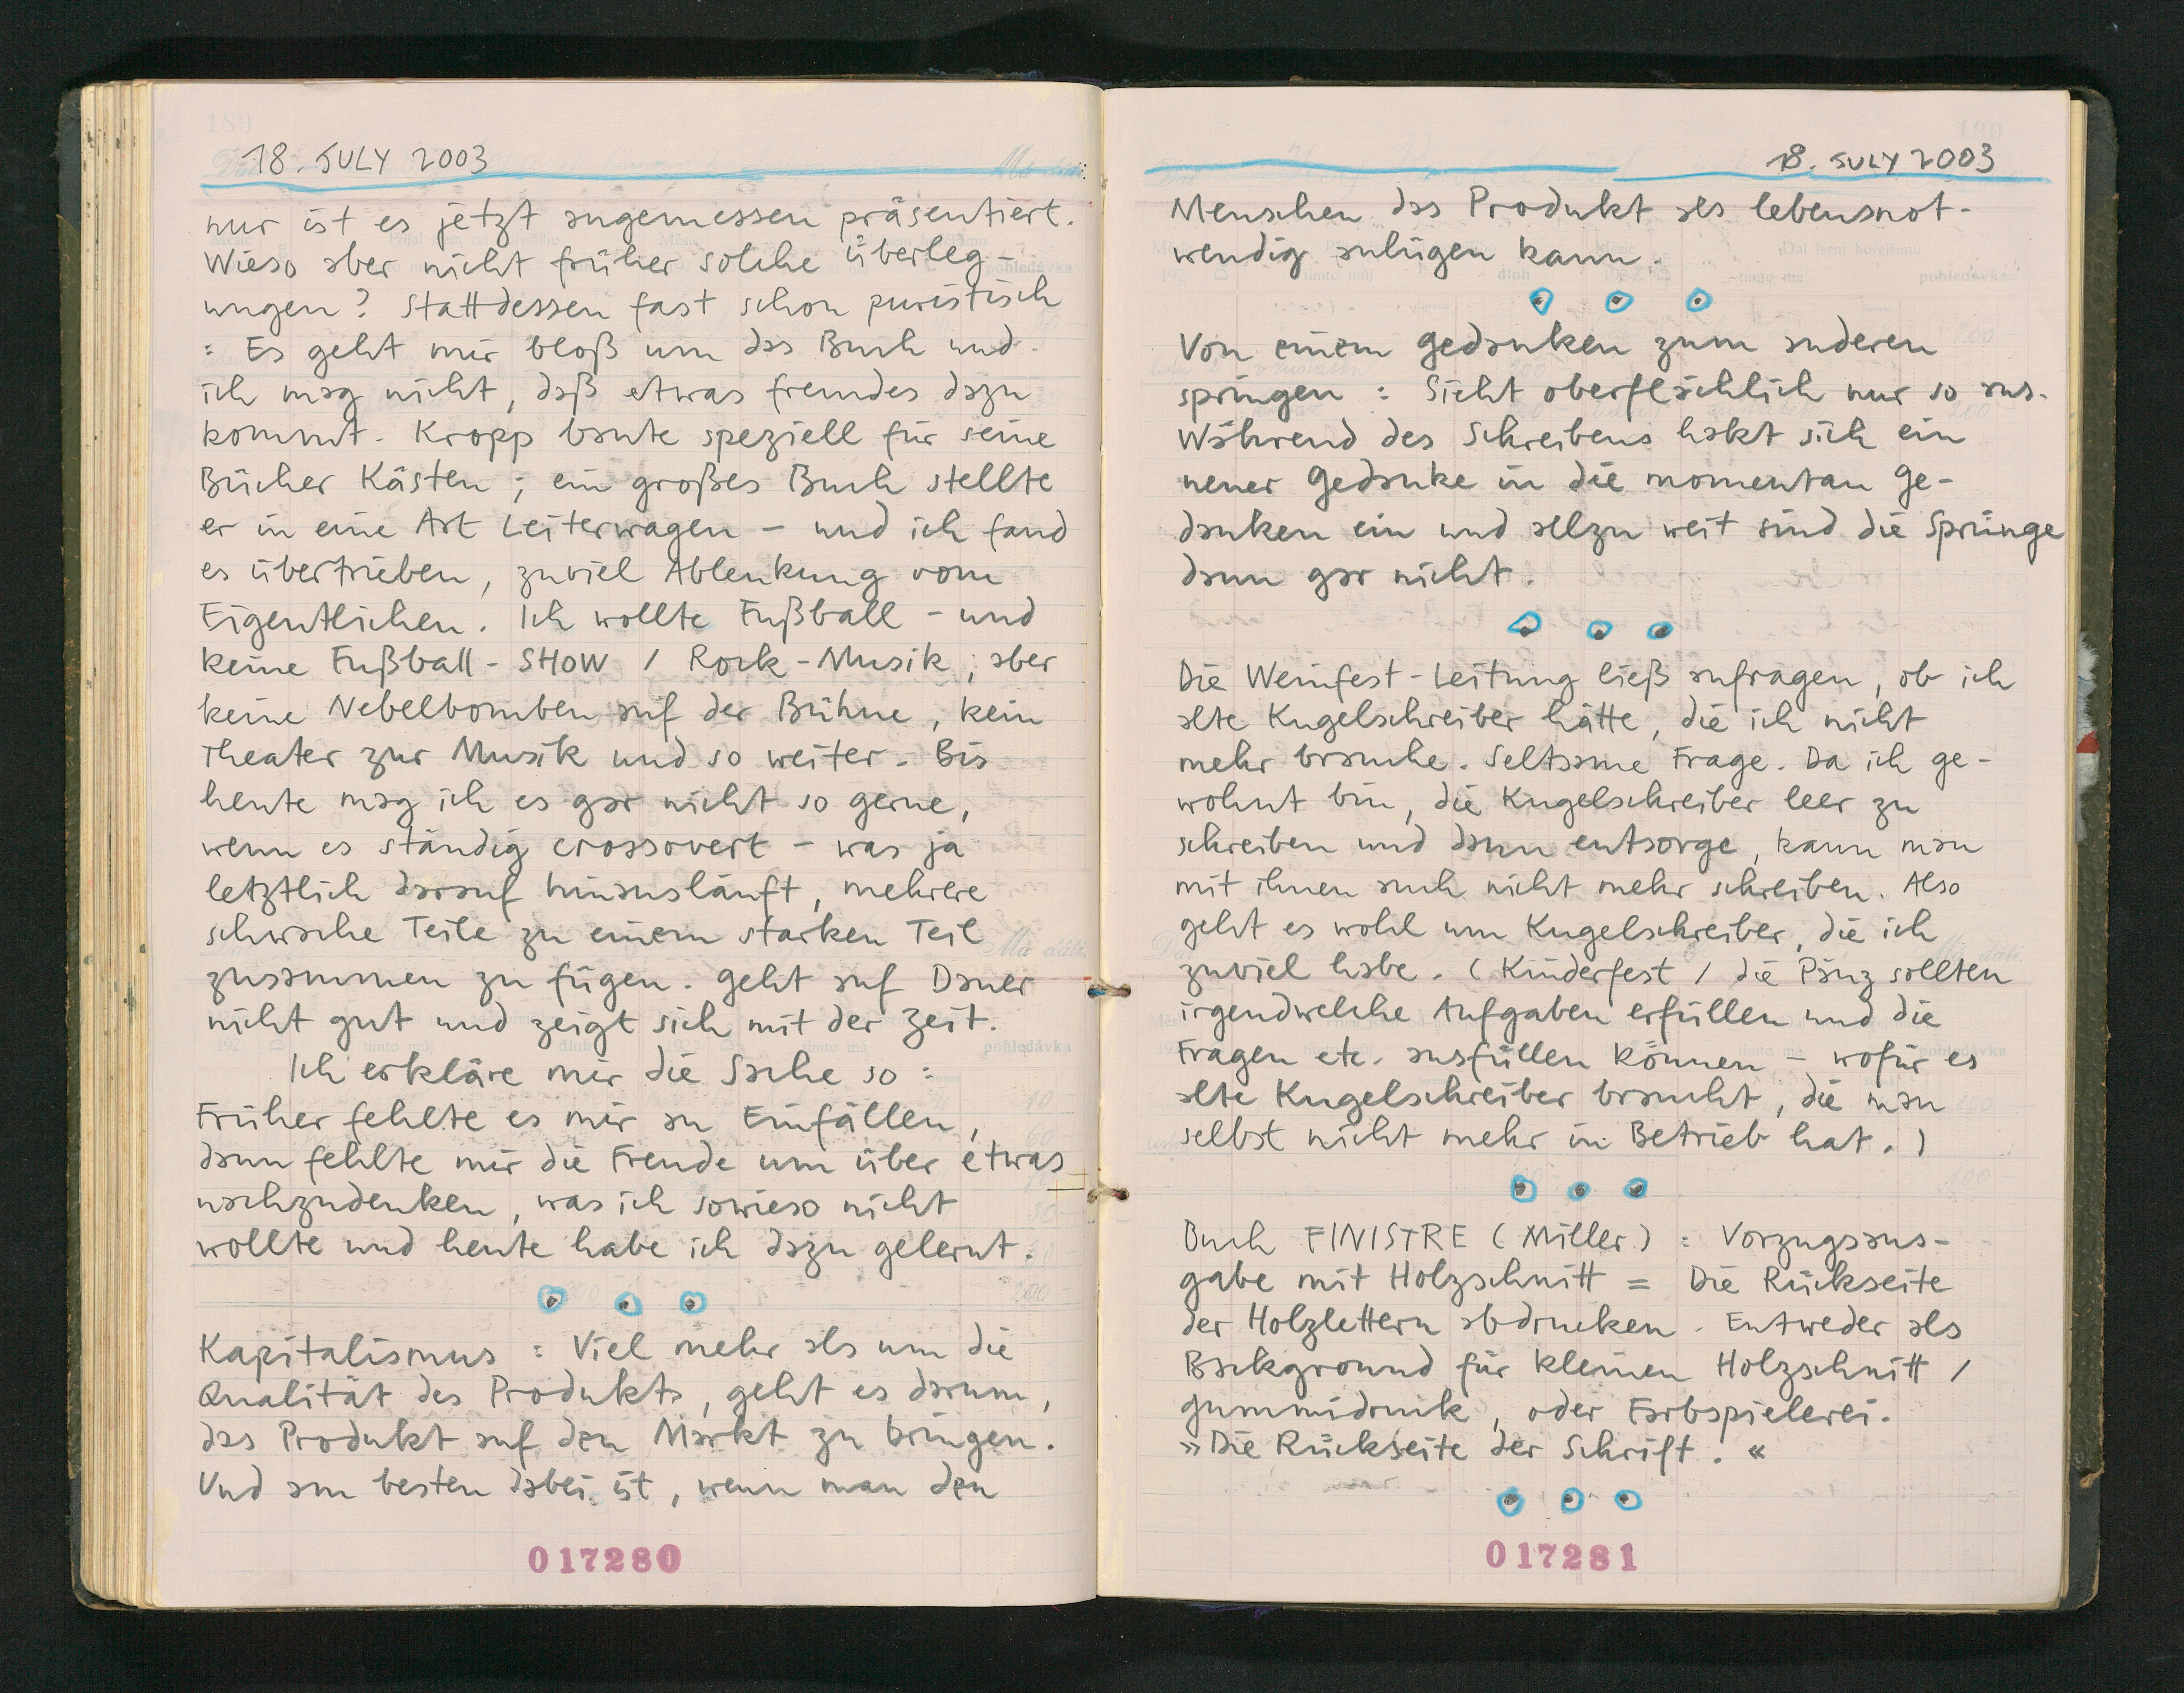 18. JULY 2003
nur ist es jetzt angemessen präsentiert.
Wieso aber nicht früher solche Überleg-
ungen? Stattdessen fast schon puristisch
: Es geht mir bloß um das Buch und
ich mag nicht, daß etwas fremdes dazu
kommt. Kropp baute speziell für seine
Bücher Kästen; ein großes Buch stellte
er in eine Art Leiterwagen – und ich fand
es übertrieben, zuviel Ablenkung vom
Eigentlichen. Ich wollte Fußball – und
keine Fußball-SHOW / Rock-Musik, aber
keine Nebelbomben auf der Bühne, kein
Theater zur Musik und so weiter. Bis
heute mag ich es gar nicht so gerne,
wenn es ständig crossovert – was ja
letztlich darauf hinausläuft, mehrere
schwache Teile zu einem starken Teil
zusammen zu fügen. Geht auf Dauer
nicht gut und zeigt sich mit der Zeit.
Ich erkläre mir die Sache so:
Früher fehlte es mir an Einfällen,
dann fehlte mir die Freude um über etwas
nachzudenken, was ich sowieso nicht
wollte und heute habe ich dazu gelernt.
Kapitalismus: Viel mehr als um die
Qualität des Produkts, geht es darum,
das Produkt auf den Markt zu bringen.
Und am besten dabei ist, wenn man den
017280
18. JULY 2003
Menschen das Produkt als lebensnot-
wendig anlügen kann.
Von einem Gedanken zum anderen
springen: Sieht oberflächlich nur so aus.
Während des Schreibens hakt sich ein
neuer Gedanke in die momentan Ge-
danken ein und allzu weit sind die Sprünge
dann gar nicht.
Die Weinfest-Leitung ließ anfragen, ob ich
alte Kugelschreiber hätte, die ich nicht
mehr brauche. Seltsame Frage. Da ich ge-
wohnt bin, die Kugelschreiber leer zu
schreiben und dann entsorge, kann man
mit ihnen auch nicht mehr schreiben. Also
geht es wohl um Kugelschreiber, die ich
zuviel habe. (Kinderfest / die Pänz sollten
irgendwelche Aufgaben erfüllen und die
Fragen etc. ausfüllen können – wofür es
alte Kugelschreiber braucht, die man
selbst nicht mehr in Betrieb hat.)
Buch FINISTRE (Miller): Vorzugsaus-
gabe mit Holzschnitt = Die Rückseite
der Holzlettern abdrucken. Entweder als
Background für kleinen Holzschnitt /
Gummidruck, oder Farbspielerei.
»Die Rückseite der Schrift.«
017281